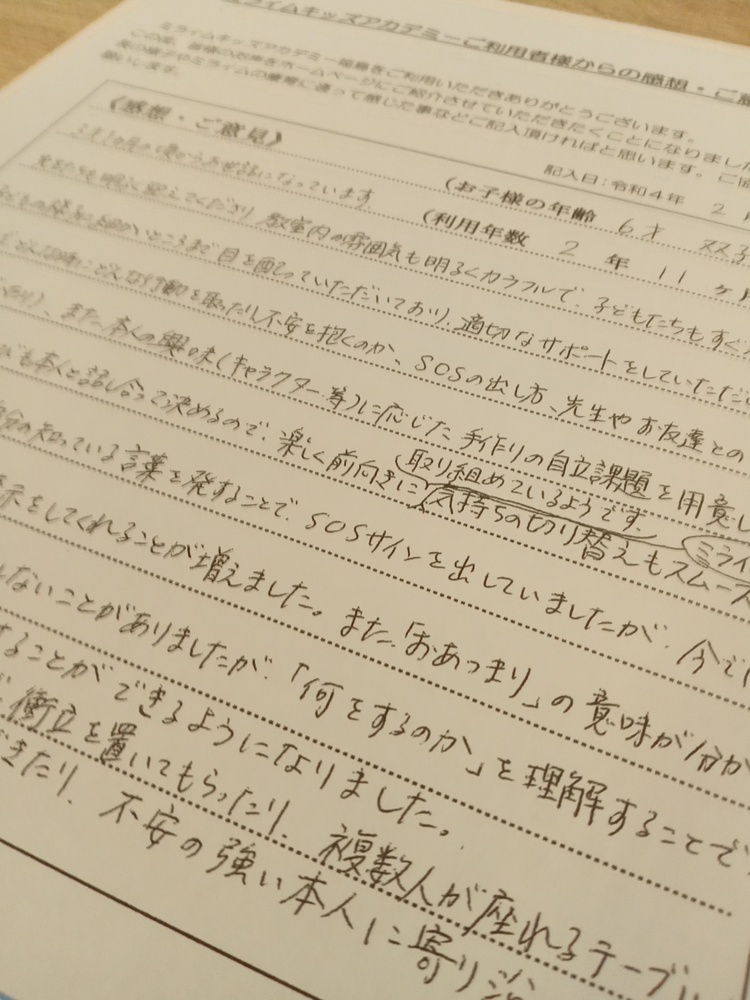 ライムキッズアカデミーご利用者様からの感想・ご意
ミライムキッズアカデミー をご利用いただきありがとうございます。
この度、皆様のお声をホームページにご紹介させていただきたくことになりました
通って感じた事などご記入頂ければと思います。ご協
願いします。
記入日:令和4年 2 月
《感想・ご意見》 (お子様の年齢 6才 双子
(利用年数 2 年 11 ヶ月
お世話になっています
迎えてくださり 教室内の雰囲気も明るくカラフルで、子どもたちもすぐ
細かいところまで目を配っていただいており、適切なサポートをしていただ
どんな時にどんな行動を取ったり、不安を抱くのか、SOSの出し方、先生やお友達との
、また本人の興味(キャラクター等)に応じた、手作りの自立課題を用意し
も本人と話し合って決めるので、楽しく前向きに取り組めているようです。ミライ
気持ちの切り替えもスムーズ
の知っている言葉を発することで、SOSサインを出していましたが、今で
示をしてくれることが増えました。また、「おあつまり」の意味が分か
ないことがありましたが、「何をするのか」を理解することで
することができるようになりました。
衝立を置いてもらったり、複数人が座れるテーブル
きたり、不安の強い本人に寄り